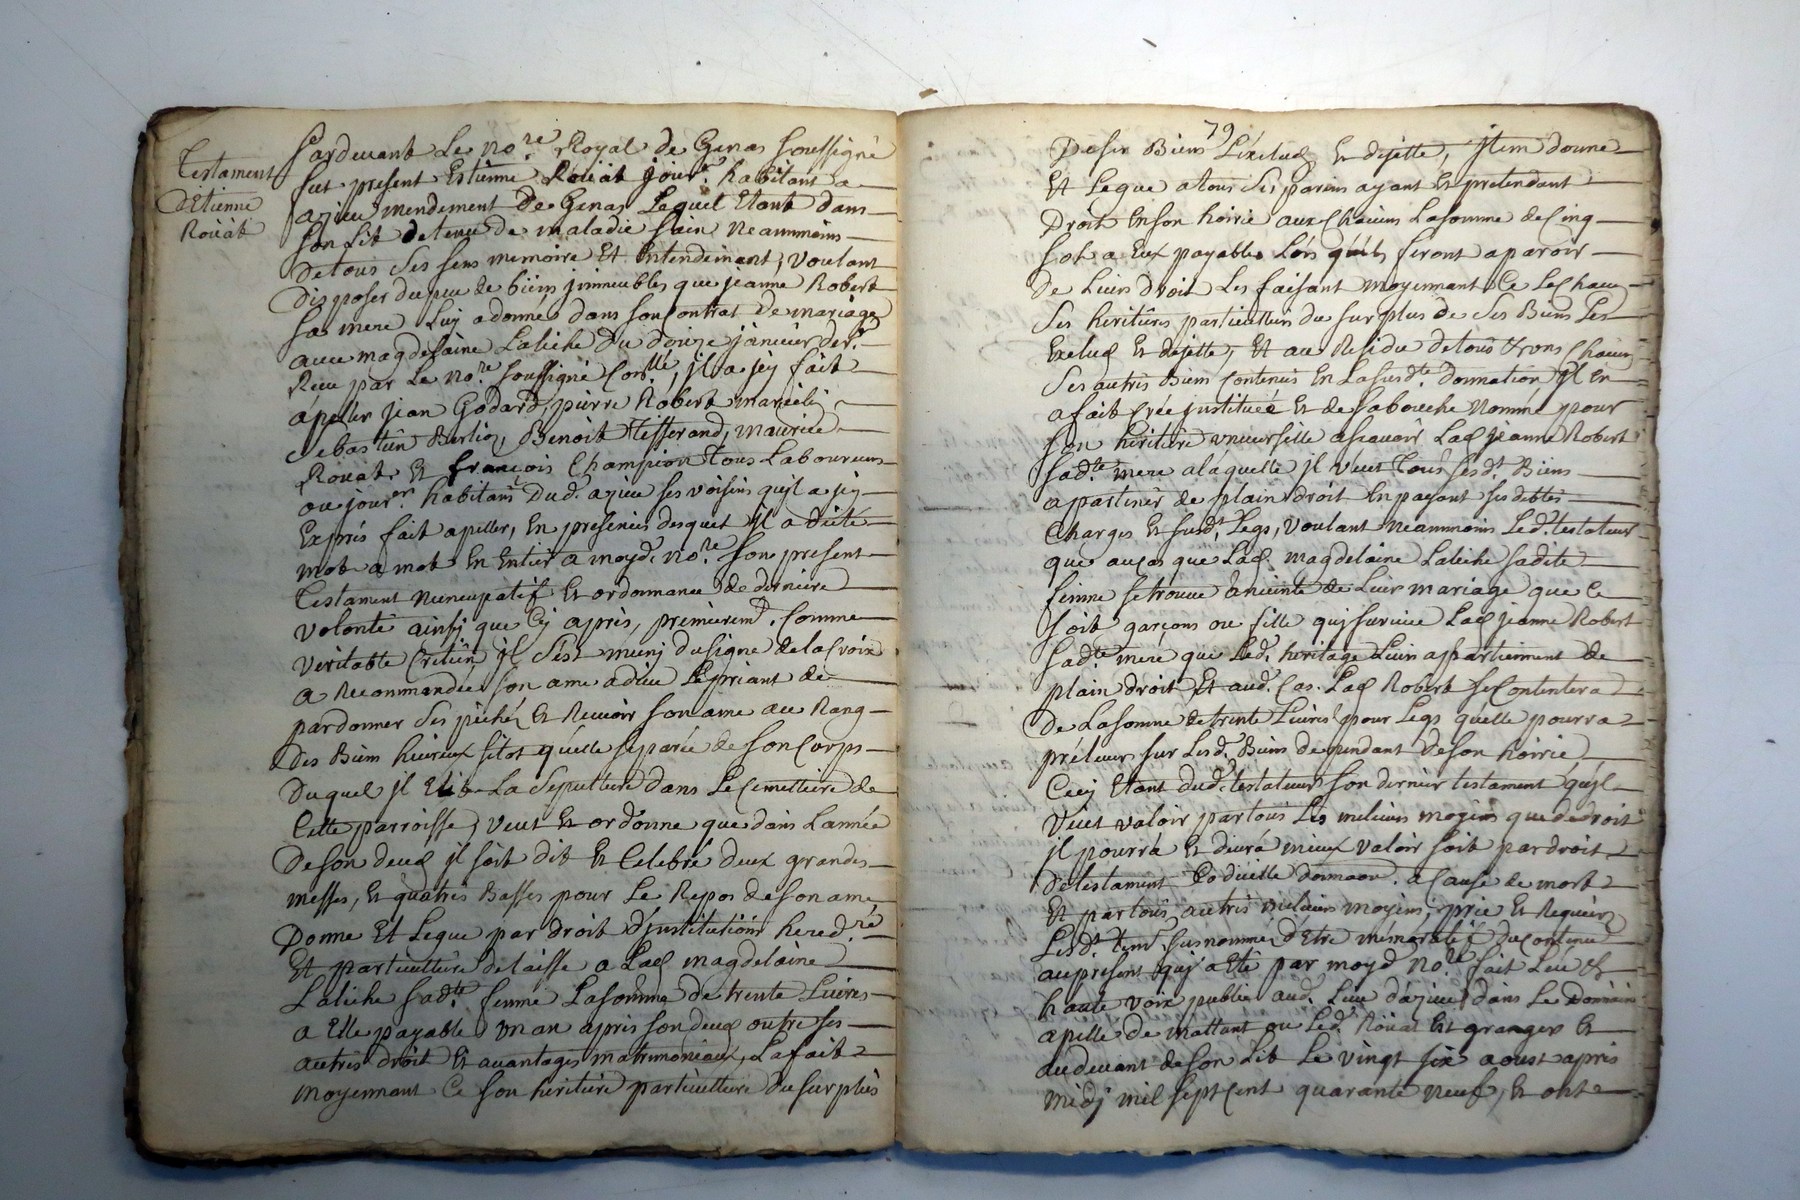 Testament
D'Etienne
Roüat
Pardevant Le no.re Royal de Genas soussigné
fut present Estienne Roüat jour.r habitant a
azieu mendement De Genas Lequel Etant dans
son Lit detenu de maladie sain neanmoins
De tous ses sens memoire Et Entendement, voulant
Disposer du peu de biens immeubles que jeanne Robert
sa mere Luy a donnés dans son Contrat De mariage
avec magdelaine Laliche Du douze janvier der.r
Receu par Le no.re soussigné, il a jcy fait
apeller jean Godard, pierre Robert
Sebastien Berlioz, Benoit Tisserand, maurice
Roüat, Et françois Champion tous Laboureurs
ou jour.rs habitans Dud. azieu ses voisins qu'jl a jcy
Exprés fait apeller, En presences desquels jl a dicté
mot a mot En Entier a moyd. no.re son present
Testament nuncupatif Et ordonnance de derniere
volonté ainsy que Cy aprés, premierem.t Comme
veritable Cretien jl s'est muny du signe de la Croix
a Recommandée son ame a dieu Le priant de
pardonner ses péchéz Et Recevoir son ame au Rang
des Bien heureux sitot qu'elle separée de son Corps
Duquel jl Elit La Sepulture dans Le Cemettiere de
Cette parroisse, veut Et ordonne que dans L'année
De son deced jl soit dit Et Celebré deux grandes
messes, Et quatres Basses pour Le Repos de son ame
Donne Et Legue par droit d'jnstitution hered.re
Et particulliere delaisse a Lad. magdelaine
Laliche sad.te femme La somme de trente Livres
a Elle payable un an aprés son deced outre ses
autres droit Et avantages matrimoniaux, La fait
moyennant Ce son heritiere particulliere Du surplus
79
De ses Biens L'exclud Et dejette, jtem donne
Et Legue a tous ses parens ayant Et pretendant
Droit En son hoirie aux Chacuns La somme de Cinq
sols a Eux payables Lors qu'ils feront aparoir
de Leurs droit Les faisant moyennant Ce
ses heritiers particulliers du surplus de ses Biens Les
Exclud Et dejette, Et au Residu de tous
ses autres Biens Contenus En La susd.te donnation jl En
a fait Créé jnstituée Et de sa bouche nommé pour
son heritiere universelle assavoir Lad. jeanne Robert
sad.te mere a laquelle jl veut Tous sesd.t Biens
apartenir de plain droit En payant ses debtes
Charges Et susd.t Legs, voulant neanmoins Led. testateur
que au Cas que Lad. magdelaine Laliche sadite
femme se trouve Enceinte de Leur mariage que Ce
soit garçons ou fille qui survive Lad. jeanne Robert
sad.te mere que Led. heritage Leurs appartiennent de
plain droit Et aud. Cas. Lad. Robert se Contentera
De La somme de trente Livres pour Legs qu'elle pourra
prélever sur Lesd. Biens dependant De son hoirie
Cecy Etant dud. testateur son dernier testament qu'jl
veut valoir par tous Les meilieurs moyens que de droit
jl pourra Et devra mieux valoir soit par droit
de testament Codicille donnaon. a Cause de mort
Et par tous autres meilieurs moyens, prie Et Requiert
Lesd.t tem.s susnommez d'Etre memoratif Du Contenu
au present qui a Eté par moyd. no.re fait Leu Et
haute voix publié aud. Lieu d'azieu dans Le Domaine
apellé de mattant ou Led. Roüat Est granger Et
au devant de son Lit Le vingt six aoust apres
midj mil sept Cent quarante neuf, Et ont